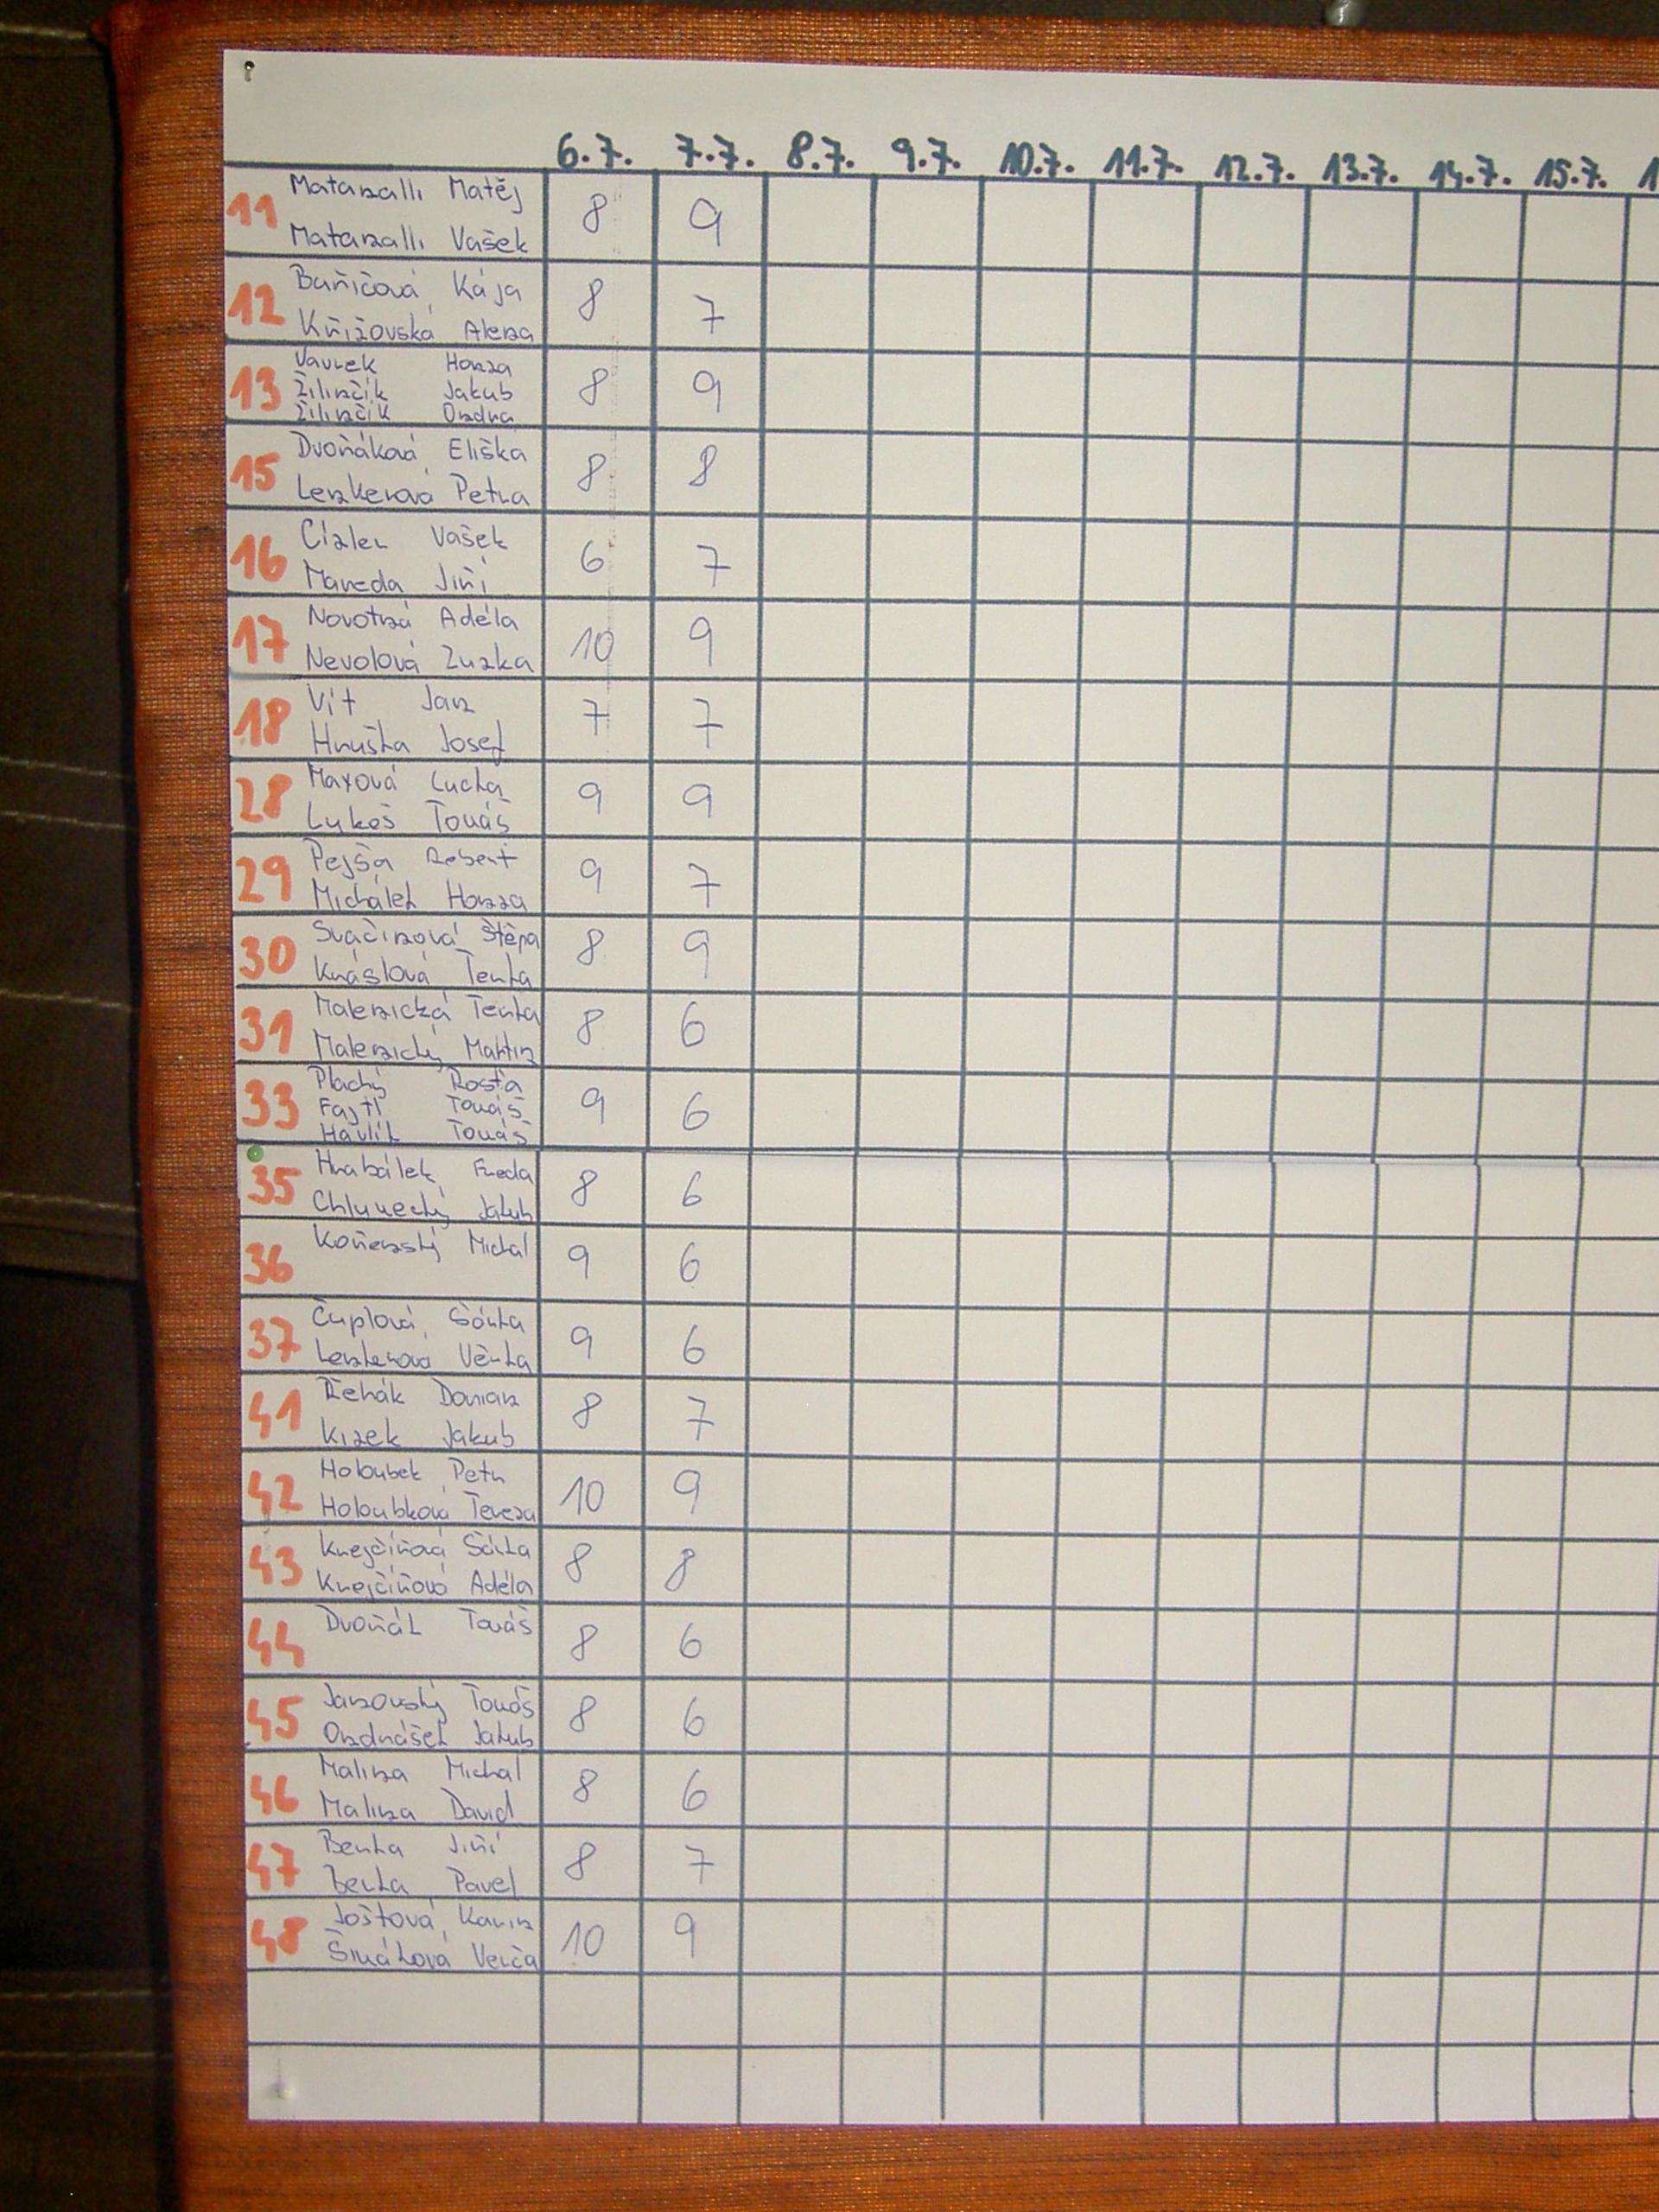 6.7. 7.7. 8.7. 9.7. 10.7. 11.7. 12.7. 13.7. 14.7. 15.7. 1
11 Matanalli Matěj 8 9
Matanalli Vašek
12 Buřičová Kája 8 7
Křižovská Alena
13 Vavrek Honza 8 9
Žilinčík Jakub
Žilinčík Ondra
15 Dvořáková Eliška 8 8
Lenkerová Petra
16 Cízler Vašek 6 7
Mareda Jiří
17 Novotná Adéla 10 9
Nevolová Zuzka
18 Vít Jan 7 7
Hruška Josef
28 Maxová Lucka 9 9
Lukeš Tomáš
29 Pejša Robert 9 7
Michálek Honza
30 Svačinová Štěpa 8 9
Kráslová Terka
31 Malenická Terka 8 6
Malenický Martin
33 Plachý Rosťa 9 6
Fajtl Tomáš
Havlík Tomáš
35 Hrabálek Freda 8 6
Chlumecký Jakub
36 Kořenský Michal 9 6
37 Čuplová Šárka 9 6
Lenkerová Věrka
41 Řehák Damian 8 7
Kizek Jakub
42 Holoubek Petr 10 9
Holoubková Tereza
43 Krejčířová Šárka 8 8
Krejčířová Adéla
44 Dvořák Tomáš 8 6
45 Janovský Tomáš 8 6
Ondrášek Jakub
46 Malina Michal 8 6
Malina David
47 Berka Jiří 8 7
Berka Pavel
48 Joštová Karin 10 9
Šmáhová Verča